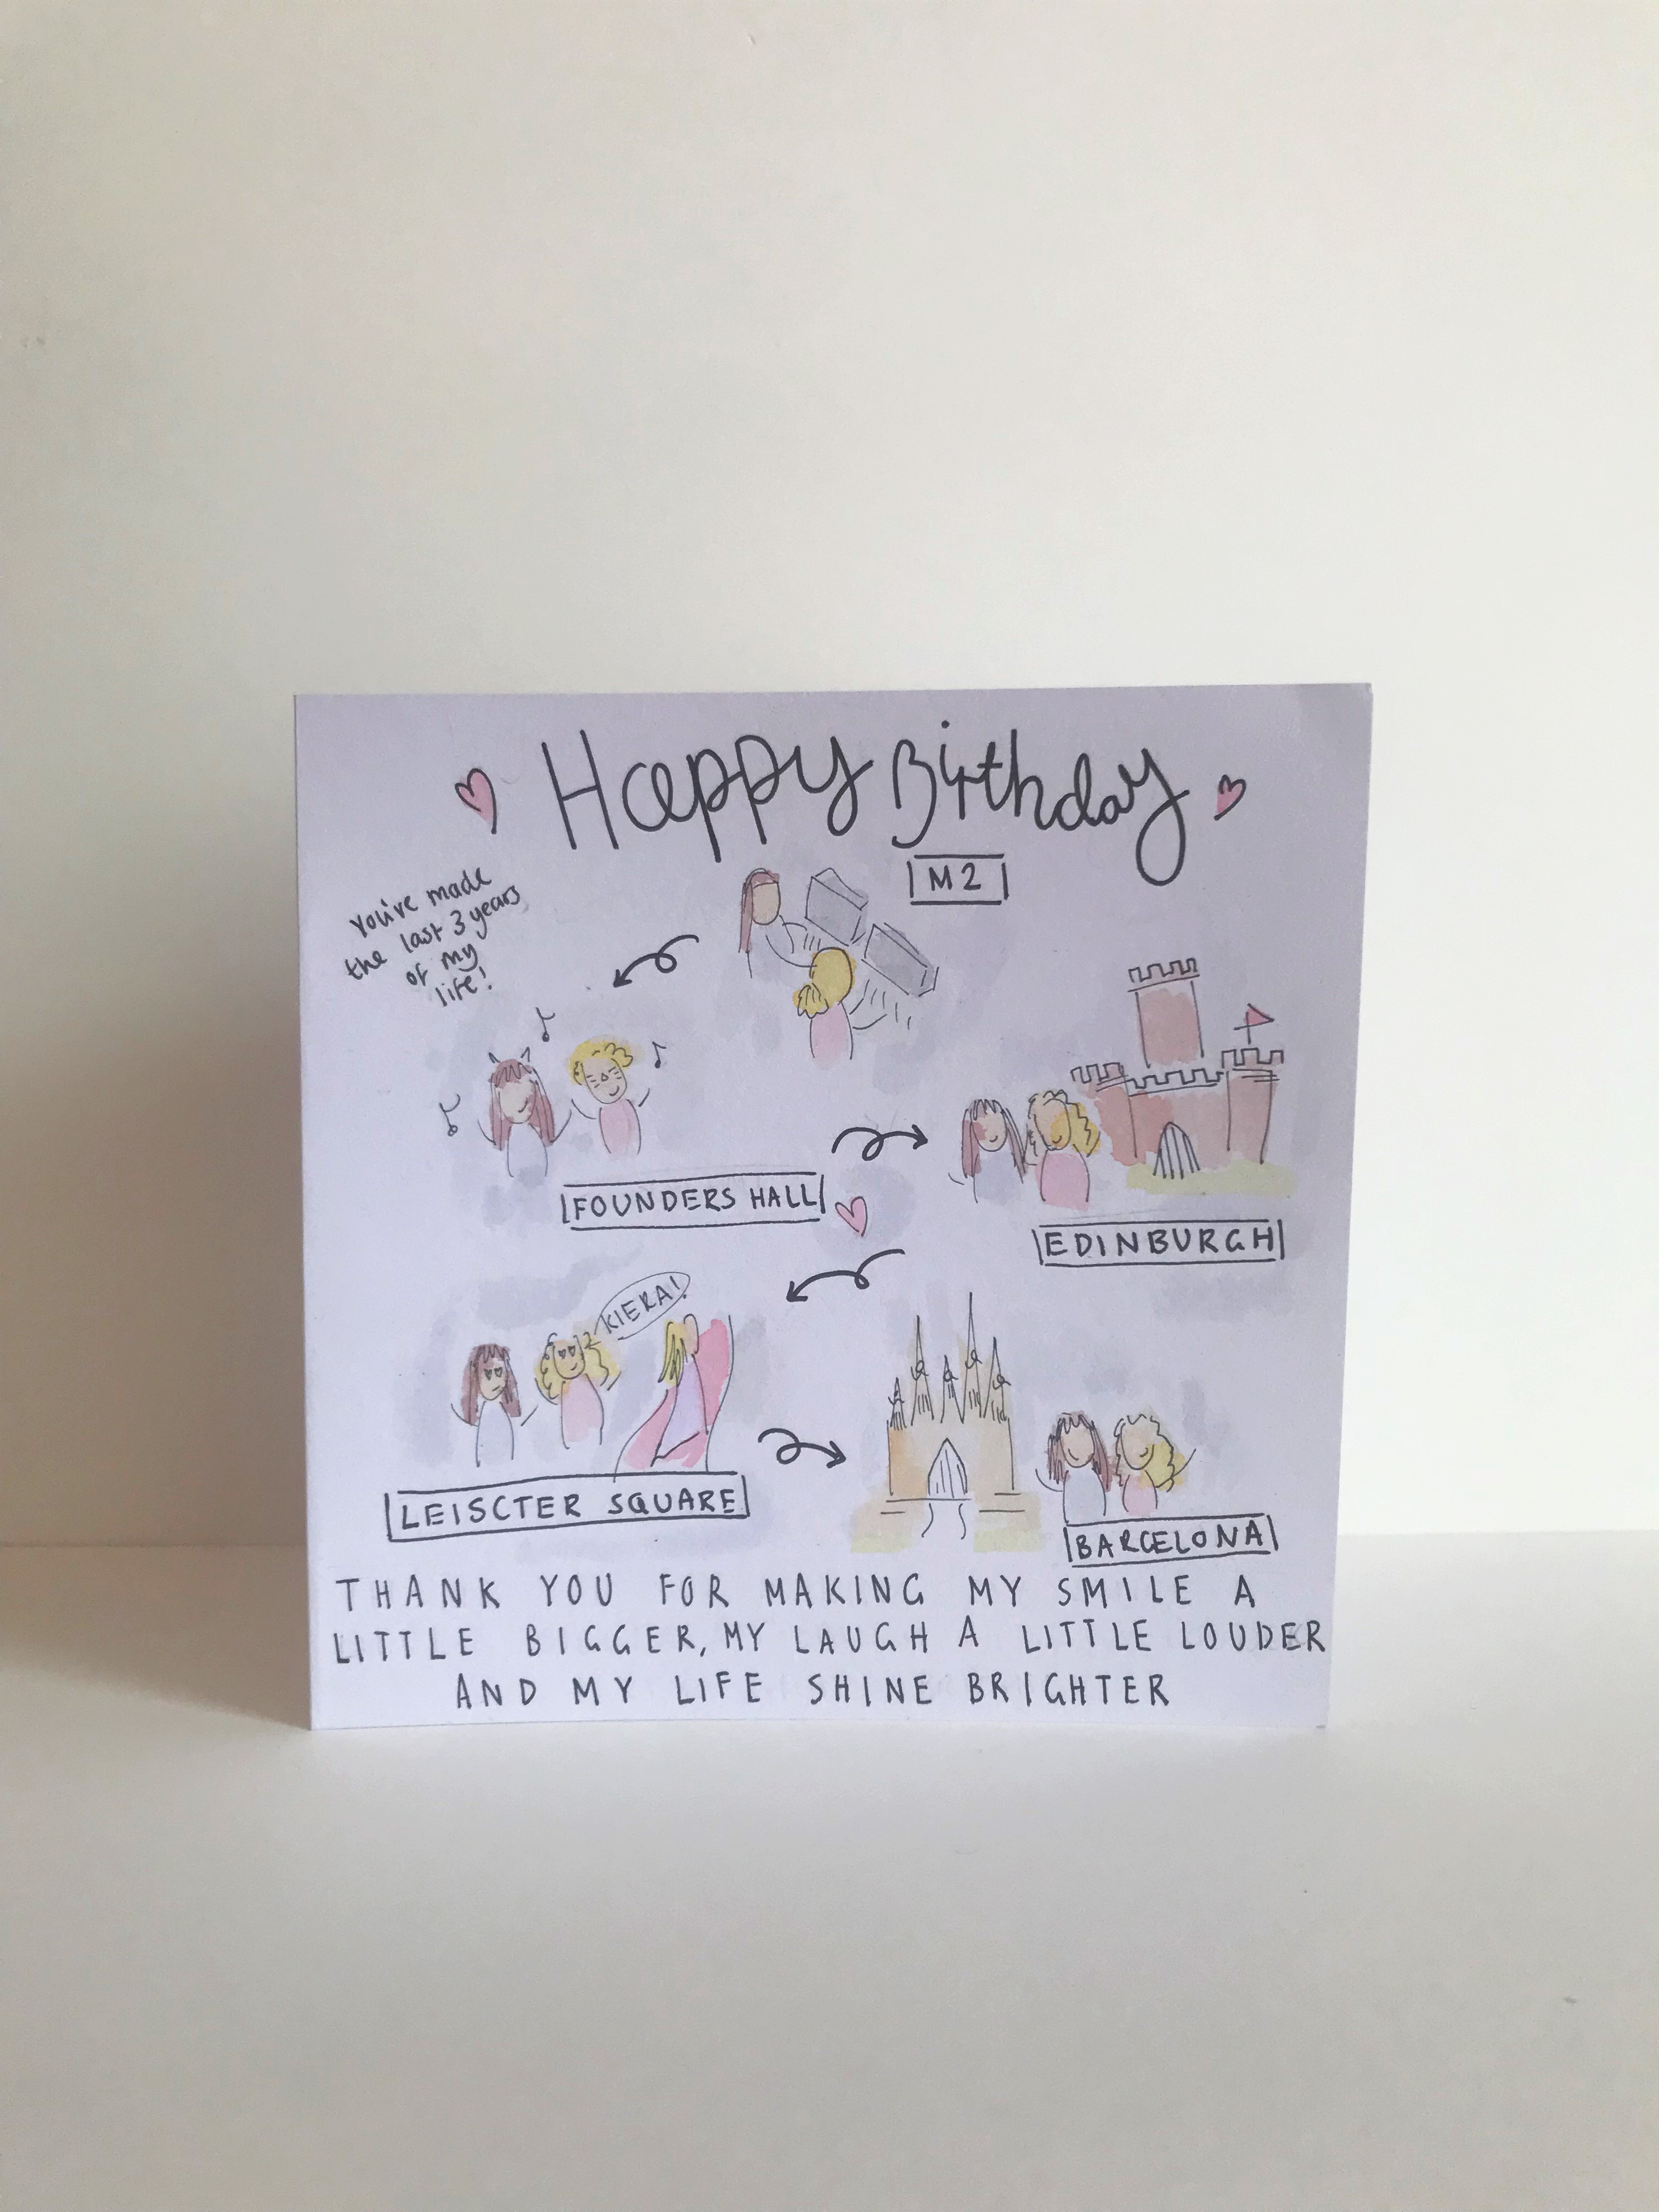 Happy Birthday
M2
You've made
the last 3 years
of my
life!
FOUNDERS HALL
EDINBURGH
KIERA!
LEISCTER SQUARE
BARCELONA
THANK YOU FOR MAKING MY SMILE A
LITTLE BIGGER, MY LAUGH A LITTLE LOUDER
AND MY LIFE SHINE BRIGHTER